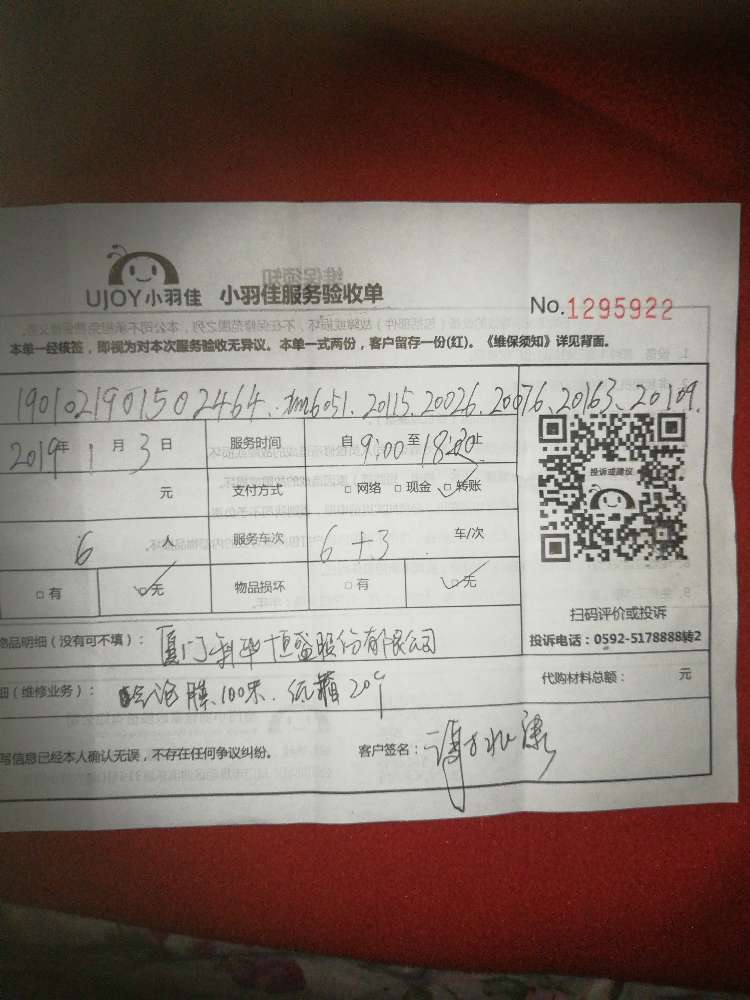 UJOY小羽佳 小羽佳服务验收单
No.1295922
本单一经核签，即视为对本次服务验收无异议。本单一式两份，客户留存一份(红)。《维保须知》详见背面。
1901021901502464. 6051. 20115. 20026. 20076. 20163. 20109.
2019年 1月 3日 服务时间 自 9:00 至 18:00 止
元 支付方式 □网络 □现金 □转账
投诉或建议
6 人 服务车次 6+3 车/次
□有 □无 物品损坏 □有 □无
扫码评价或投诉
物品明细（没有可不填）： 厦门 恒盛股份有限公司
投诉电话：0592-5178888转2
细（维修业务）： 膜.100米. 纸箱20个
代购材料总额： 元
写信息已经本人确认无误，不存在任何争议纠纷。 客户签名：